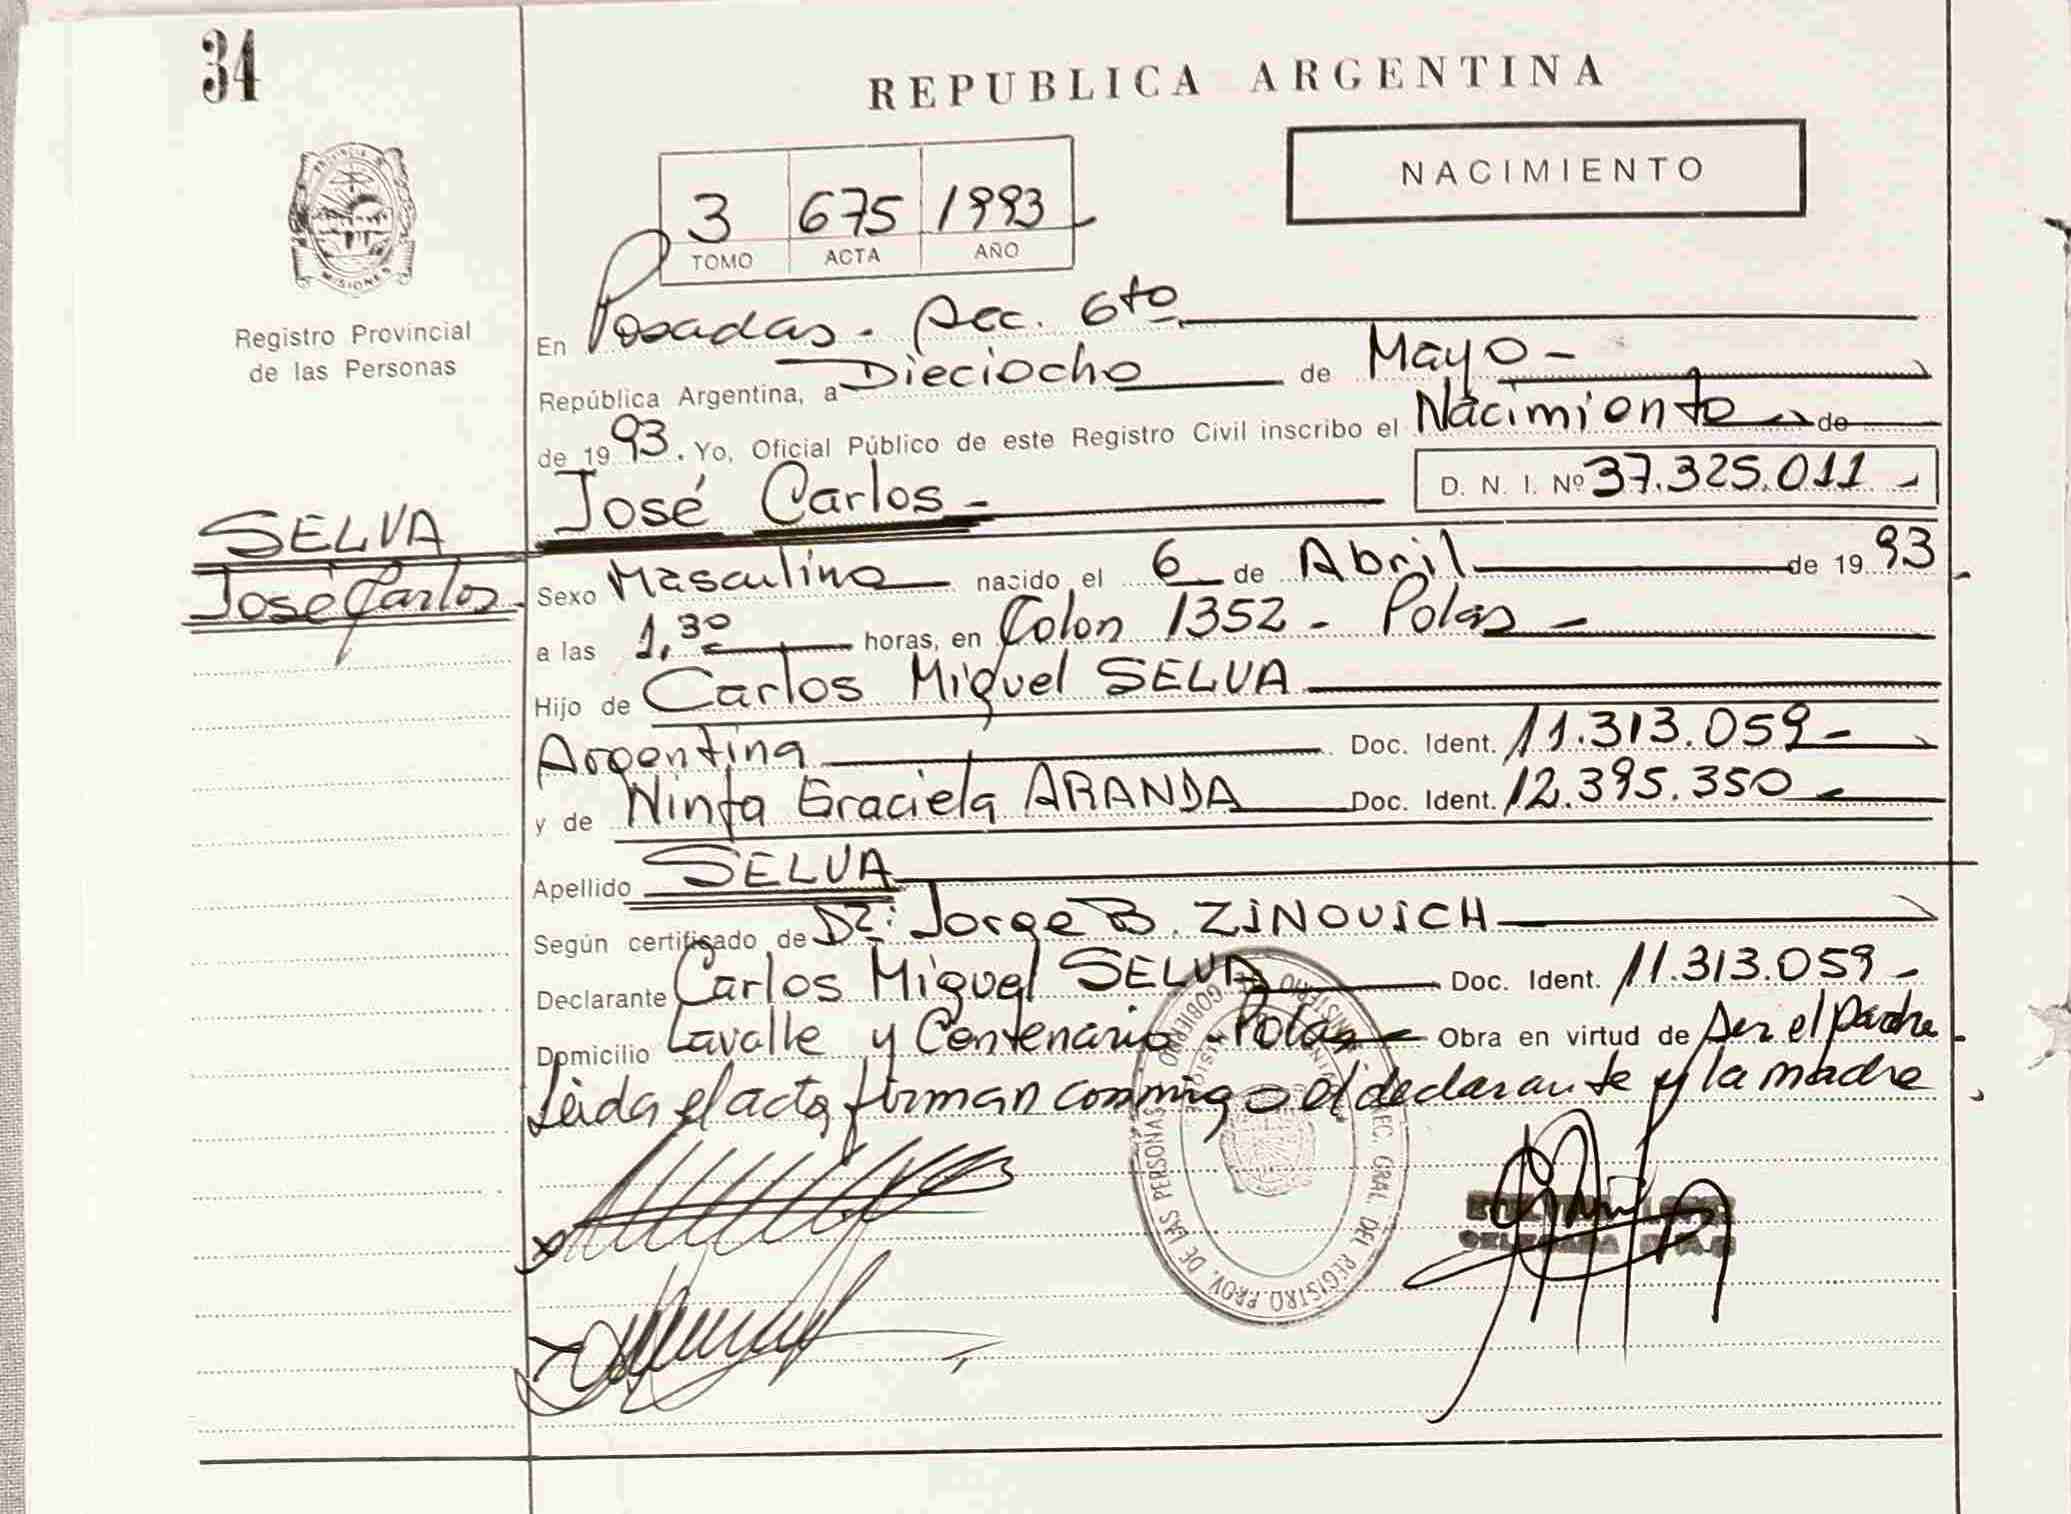 34
REPUBLICA ARGENTINA
NACIMIENTO
3 675 1993
TOMO ACTA AÑO
PROVINCIA DE
MISIONES
Registro Provincial
de las Personas
En Posadas - Sec. 6to
República Argentina, a Dieciocho de Mayo -
de 1993. Yo, Oficial Público de este Registro Civil inscribo el Nacimiento de
José Carlos - D. N. I. Nº 37.325.011 -
SELVA
José Carlos
Sexo Masculino nacido el 6 de Abril de 1993
a las 1,30 horas, en Colon 1352 - Pdas -
Hijo de Carlos Miguel SELVA
Argentina Doc. Ident. 11.313.059 -
y de Ninfa Graciela ARANDA Doc. Ident. 12.395.350 -
Apellido SELVA
Según certificado de Dr: Jorge B. ZINOVICH
Declarante Carlos Miguel SELVA Doc. Ident. 11.313.059 -
Domicilio Lavalle y Centenario - Pdas - Obra en virtud de ser el padre -
Leida el acta firman conmigo el declarante y la madre
MINISTERIO DE GOBIERNO
DEL REGISTRO PROV. DE LAS PERSONAS